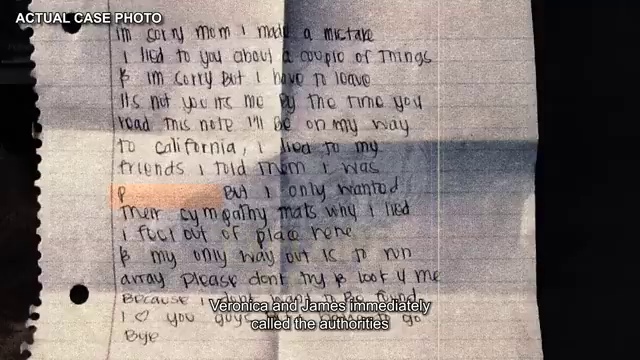 ACTUAL CASE PHOTO
Im sorry mom I made a mistake
I lied to you about a couple of things
& im sorry But I have to leave
its not you its me By the time you
read this note I'll be on my way
to california, I lied to my
friends I told them I was
P But I only wanted
Their cympathy thats why I lied
I feel out of place here
& my only way out is to run
array please dont try & look 4 me
Because I dont want to be found
I ♡ you guys to go
Bye
Veronica and James immediately
called the authorities